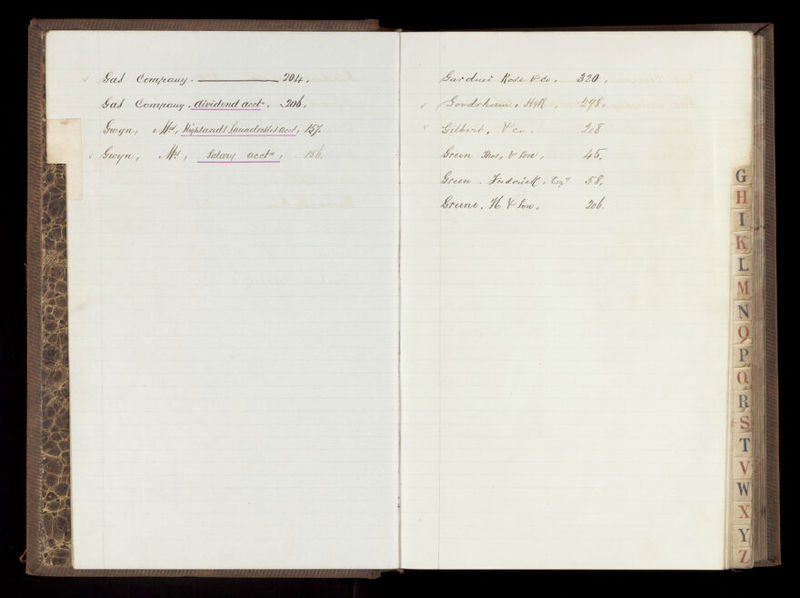 Gas Company. 204.
Gas Company, dividend acct. 206.
Gwyn, Mrs, Highlands Laundresses acct, 157.
Gwyn, Mrs, Salary acct, 156.
Gardner Rose & Co. 320.
298.
Gilbert, & Co. 208
Green Thos, & Son, 45.
Green. Frederick, Esqr 58.
Greene. H & Son. 206.
G
H
I
K
L
M
N
O
P
Q
R
S
T
V
W
X
Y
Z